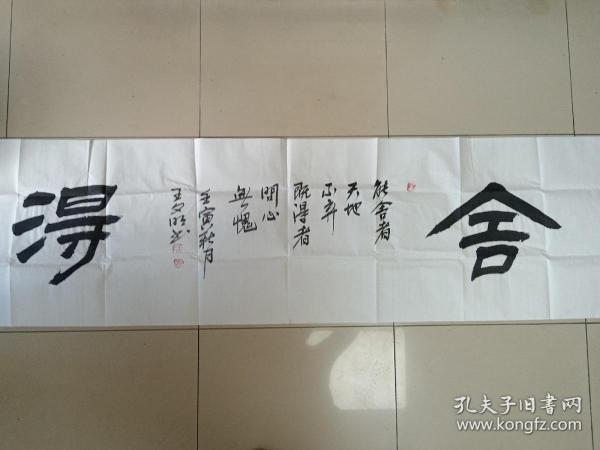 舍
能舍者
天地
不弃
既得者
問心
無愧
壬寅秋月
得
孔夫子旧书网
www.kongfz.com